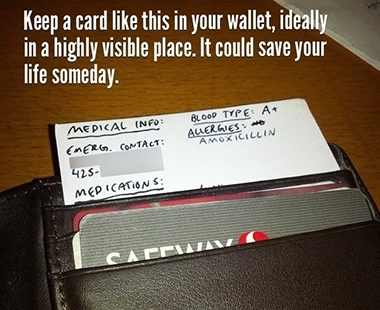 Keep a card like this in your wallet, ideally
in a highly visible place. It could save your
life someday.
MEDICAL INFO:
EMERG. CONTACT:
425-
MEDICATIONS:
BLOOD TYPE: A+
ALLERGIES:
AMOXICILLIN
SAFEWAY